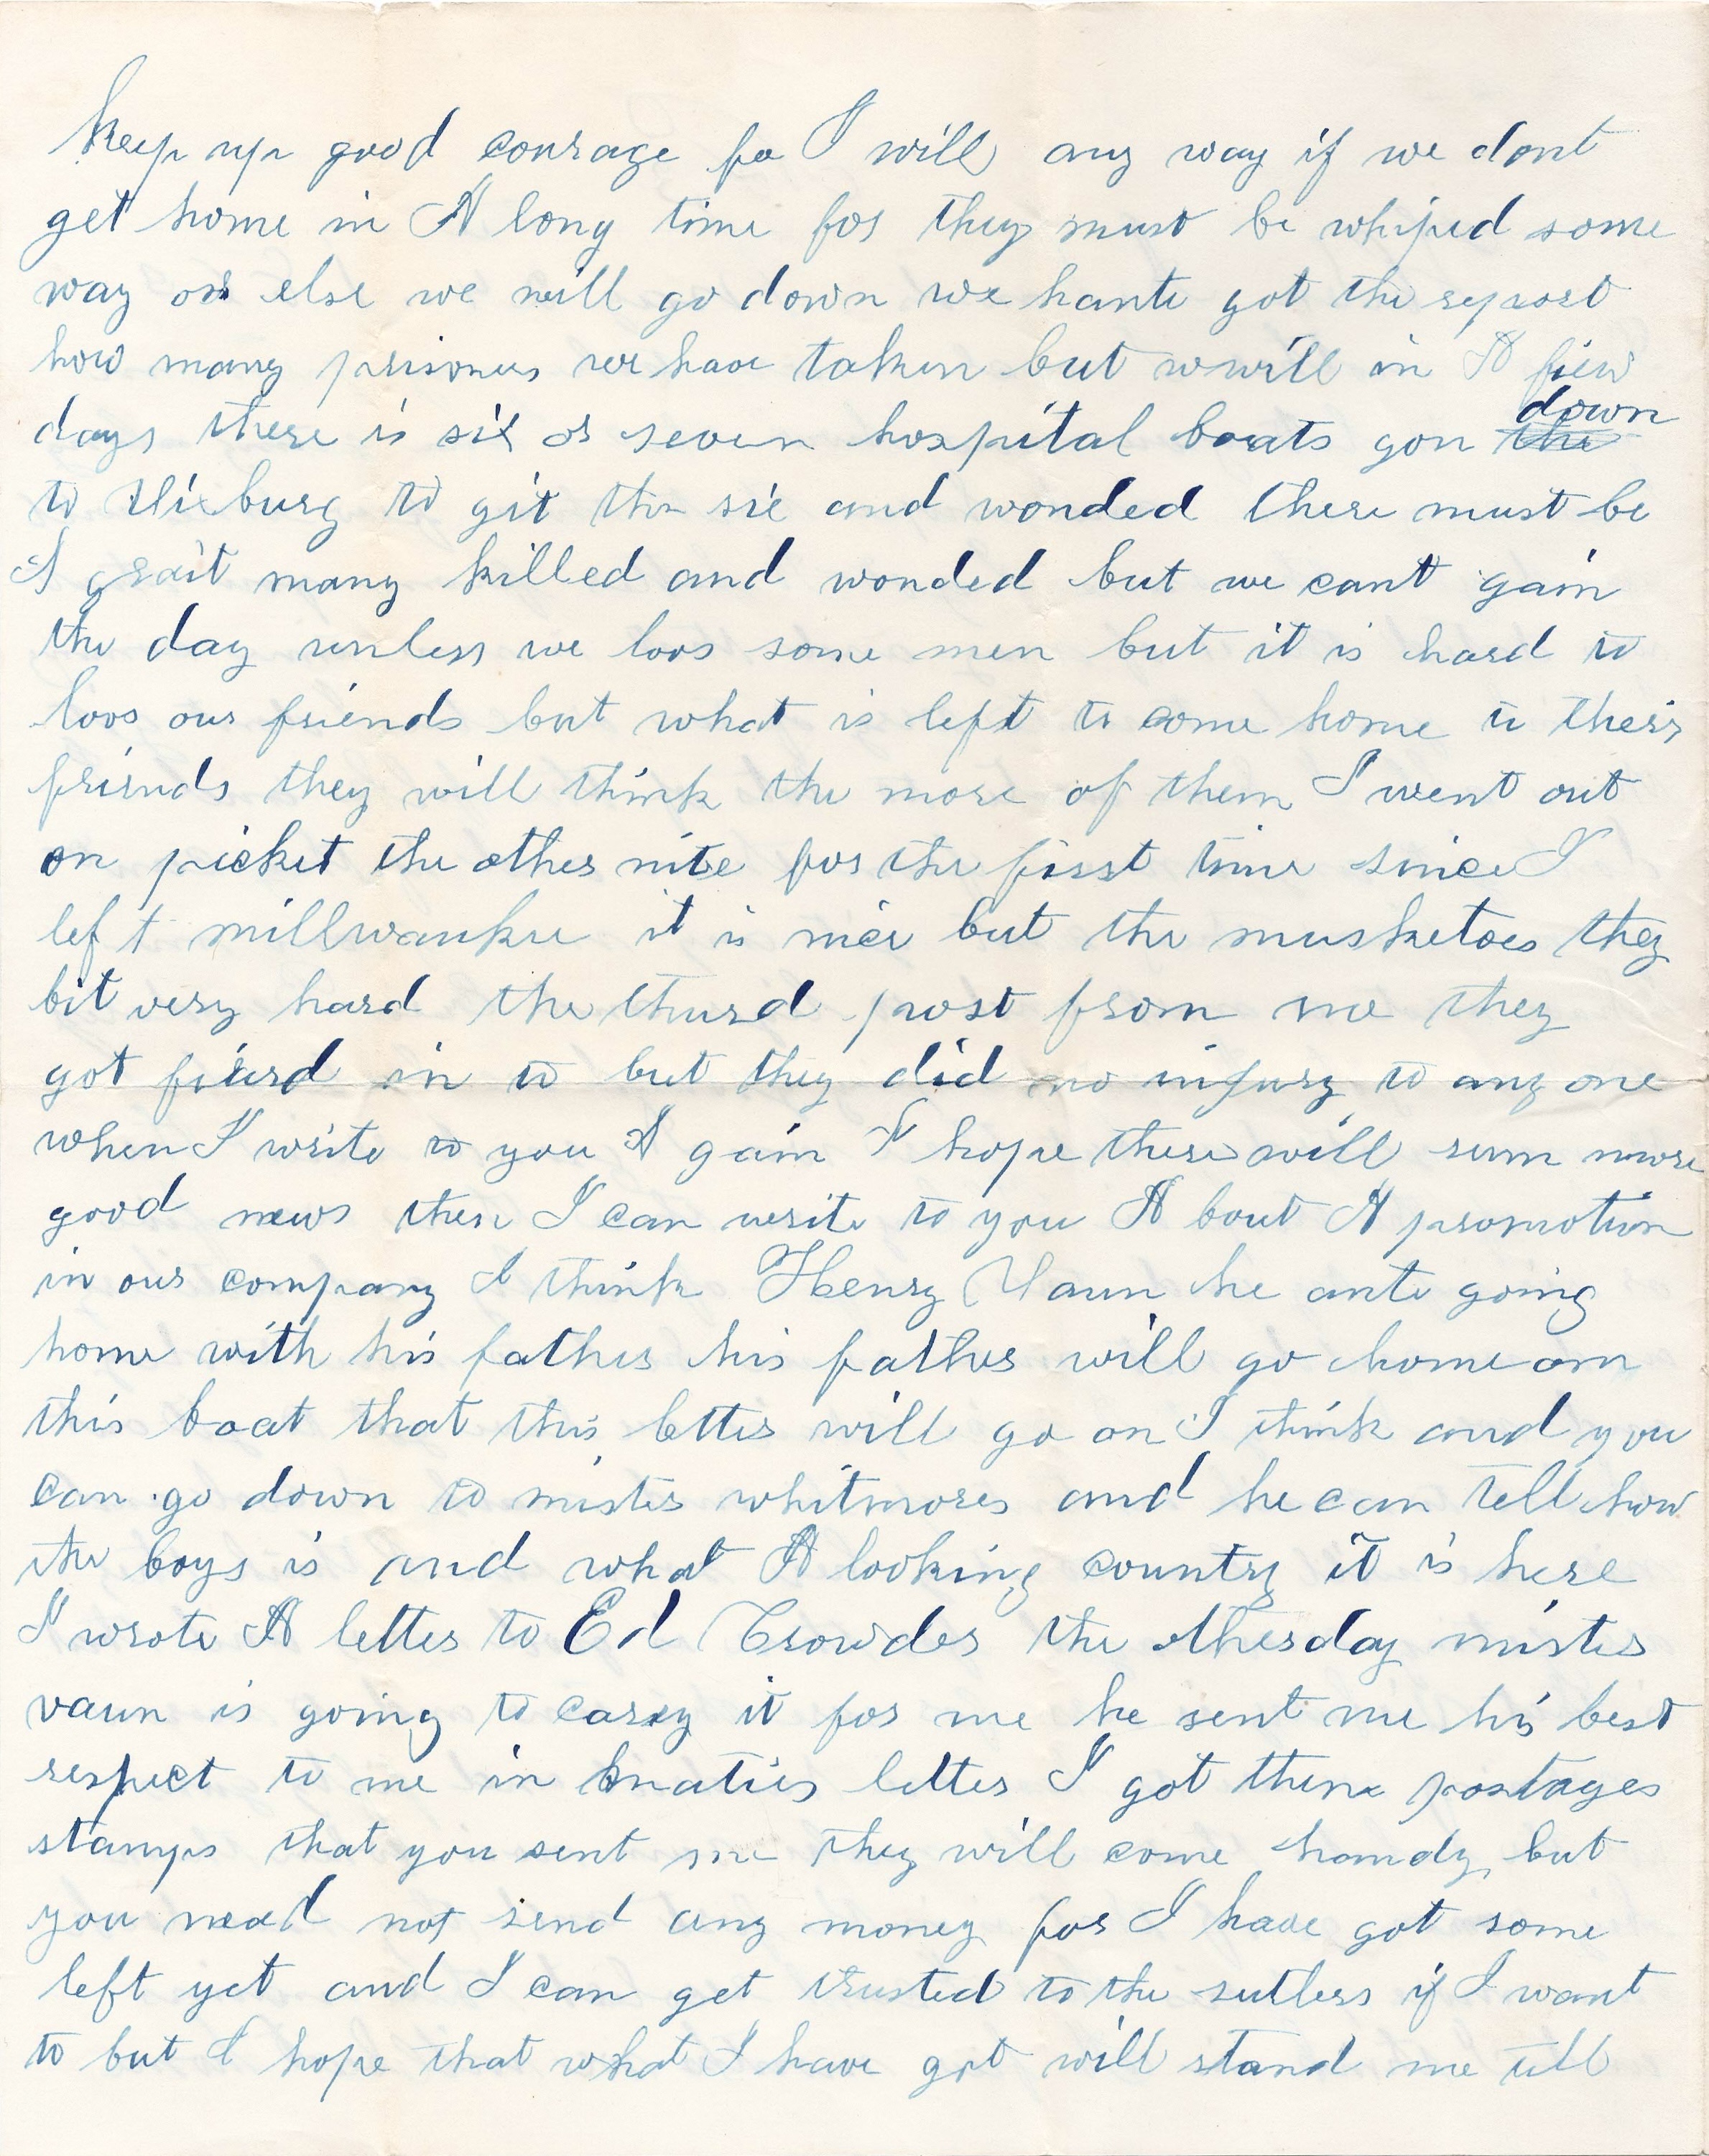 keep up good courage fo I will any way if we dont
get home in A long time for they must be whiped some
way or else we will go down we hante got the report
how many prisoners we have taken but wwill in A fiew
days there is six or seven hospital boats gon the down
to Vixburg to git the sic and wonded there must be
A grait many killed and wonded but we cant gain
the day unless we loos some men but it is hard to
loos our friends but what is left to come home to their
friends they will think the more of them I went out
on picket the other nite for the first time since I
left millwaukee it is nice but the musketoes they
bit very hard the thurd post from me they
got fierd in to but they did no injury to any one
when I write to you A gain I hope there will sum more
good news then I can write to you A bout A promotion
in our company I think Henry Vaun he ante going
home with his father his father will go home on
this boat that this letter will go on I think and you
can go down to mister whitmores and he can tell how
the boys is and what A looking country it is here
I wrote A letter to Ed Crowder the otherday mister
vaun is going to carry it for me he sent me his best
respect to me in letter I got them postages
stamps that you sent me they will come handy but
you nead not send any money for I have got some
left yet and I can get trusted to the sutlers if I want
to but I hope that what I have got will stand me till